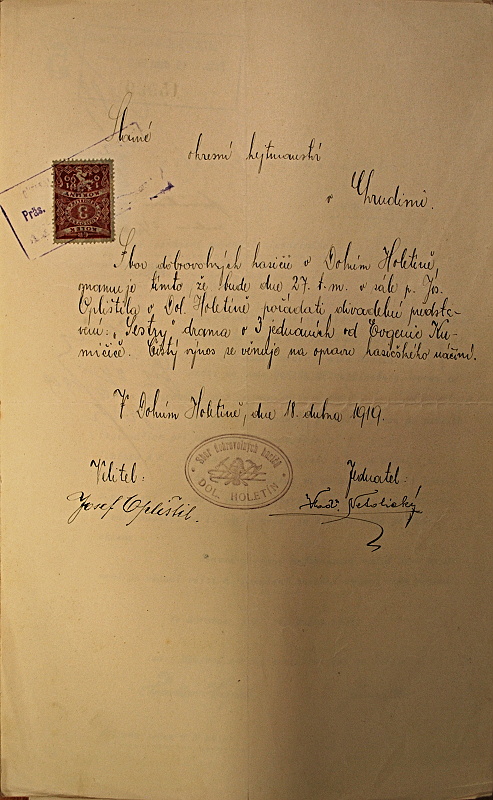 Slavné
okresní hejtmanství
v
Chrudimi.
Präs.
Sbor dobrovolných hasičů v Dolním Holetíně
oznamuje tímto, že bude dne 27. t. m. v sále p. Jos.
Opletila v Dol. Holetíně pořádati divadelní předsta-
vení: "Sestry" drama o 3 jednáních od Evgenie Ku-
mičiče. Čistý výnos se věnuje na opravu hasičského náčiní.
V Dolním Holetíně, dne 18. dubna 1919.
Velitel:
Jednatel:
Sbor dobrovolných hasičů
DOL. HOLETÍN
Josef Opletil.
Netolický